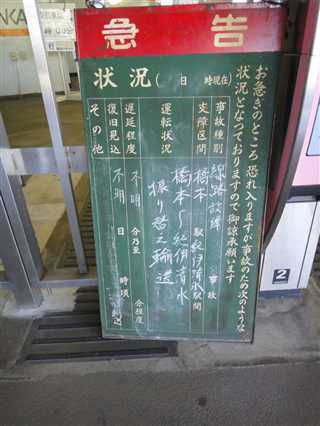 急告
お急ぎのところ恐れ入りますが事故のため次のような
状況となっておりますので御諒承願います
状況(　日　時現在)
事故種別 線路故障 事故
支障区間 橋本駅 紀伊清水駅間
運転状況 橋本~紀伊清水
振り替え輸送
遅延程度 不明 分乃至 分程度
復旧見込 不明 日 時頃
その他
2